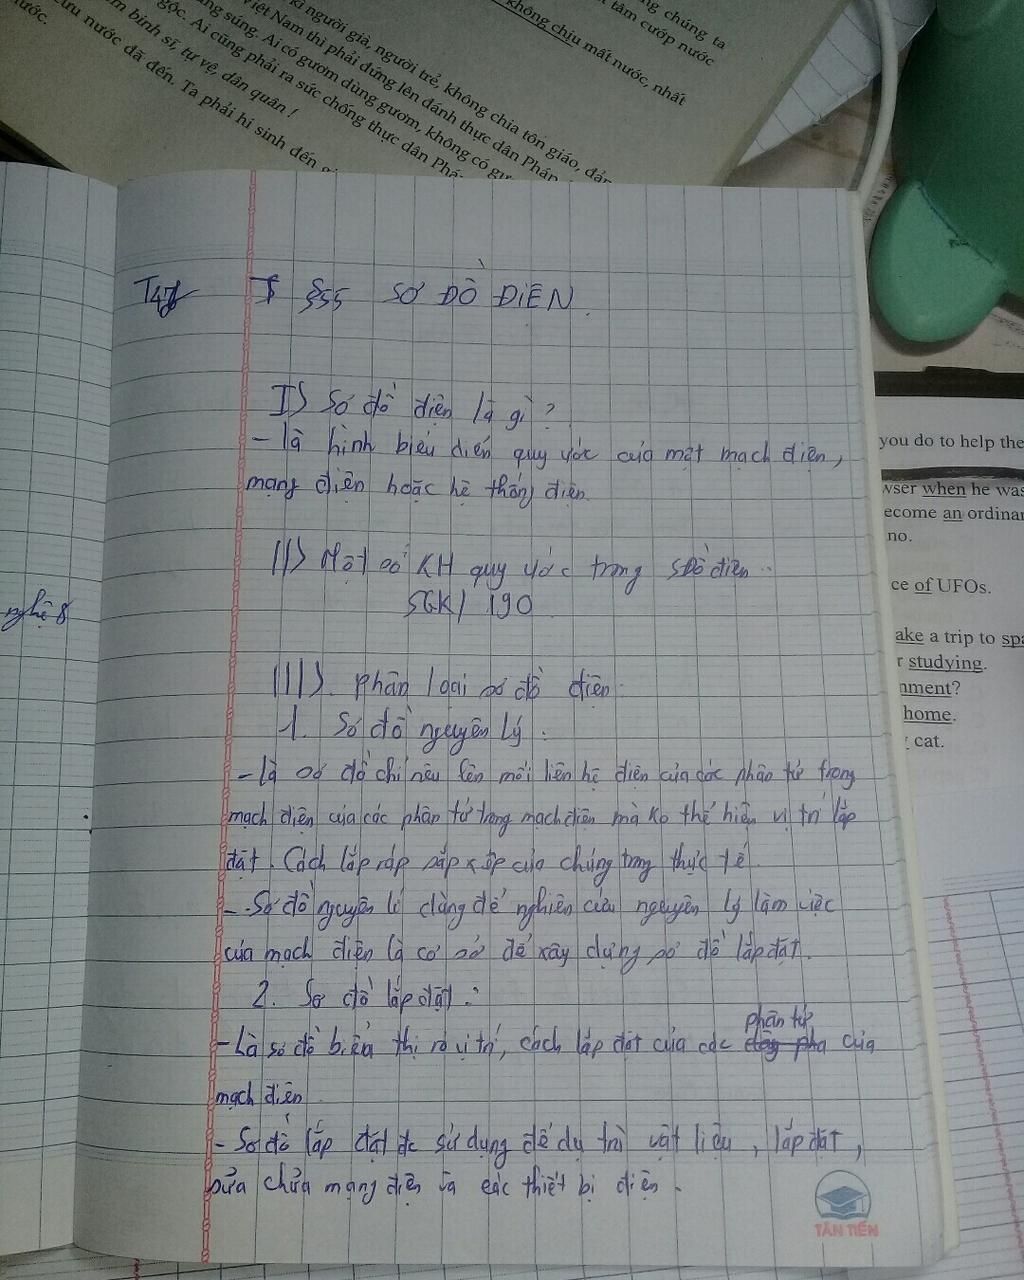 ng chúng ta
t tâm cướp nước
không chịu mất nước, nhất
kì người già, người trẻ, không chia tôn giáo, đản
Việt Nam thì phải đứng lên đánh thực dân Pháp
ng súng. Ai có gươm dùng gươm, không có gư
gộc. Ai cũng phải ra sức chống thực dân Phá
nước.
m binh sĩ, tự vệ, dân quân !
ưu nước đã đến. Ta phải hi sinh đến gi
§55 SƠ ĐỒ ĐIỆN
I> Sơ đồ điện là gì ?
- là hình biểu diễn quy ước của một mạch điện,
mạng điện hoặc hệ thống điện.
II> Một số KH quy ước trong sơ đồ điện
SGK/ 190
nghệ 8
III>. phân loại sơ đồ điện
1. Sơ đồ nguyên lý :
- là sơ đồ chỉ nêu lên mối liên hệ điện của các phần tử trong
mạch điện của các phần tử trong mạch điện mà ko thể hiện vị trí lắp
đặt. Cách lắp ráp sắp xếp của chúng trong thực tế.
- Sơ đồ nguyên lí dùng để nghiên cứu nguyên lý làm việc
của mạch điện là cơ sở để xây dựng sơ đồ lắp đặt.
2. Sơ đồ lắp đặt :
- Là sơ đồ biểu thị rõ vị trí, cách lắp đặt của các phần tử của
mạch điện
- Sơ đồ lắp đặt đc sử dụng để dự trù vật liệu, lắp đặt,
sửa chữa mạng điện và các thiết bị điện.
TÂN TIẾN
you do to help the
wser when he was
ecome an ordinar
no.
ce of UFOs.
ake a trip to spa
r studying.
nment?
home.
cat.